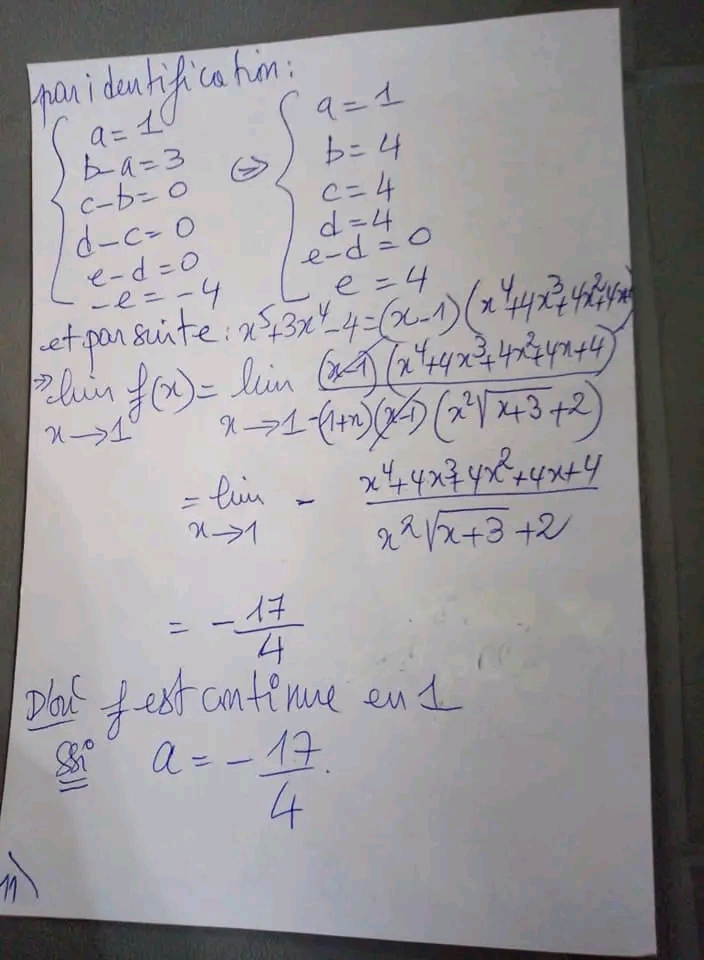 par identification:
{ a = 1 ⇔ { a = 1
b-a = 3 b = 4
c-b = 0 c = 4
d-c = 0 d = 4
e-d = 0 e-d = 0
-e = -4 e = 4
et par suite: x⁵+3x⁴-4 = (x-1)(x⁴+4x³+4x²+4x
⇒ lim f(x) = lim (x-1)(x⁴+4x³+4x²+4x+4)
x→1 x→1 -(1+x)(x-1)(x²√x+3+2)
= lim - x⁴+4x³+4x²+4x+4
x→1 x²√x+3+2
= - 17
4
D'où f est continue en 1
Ssi a = - 17.
4
11)